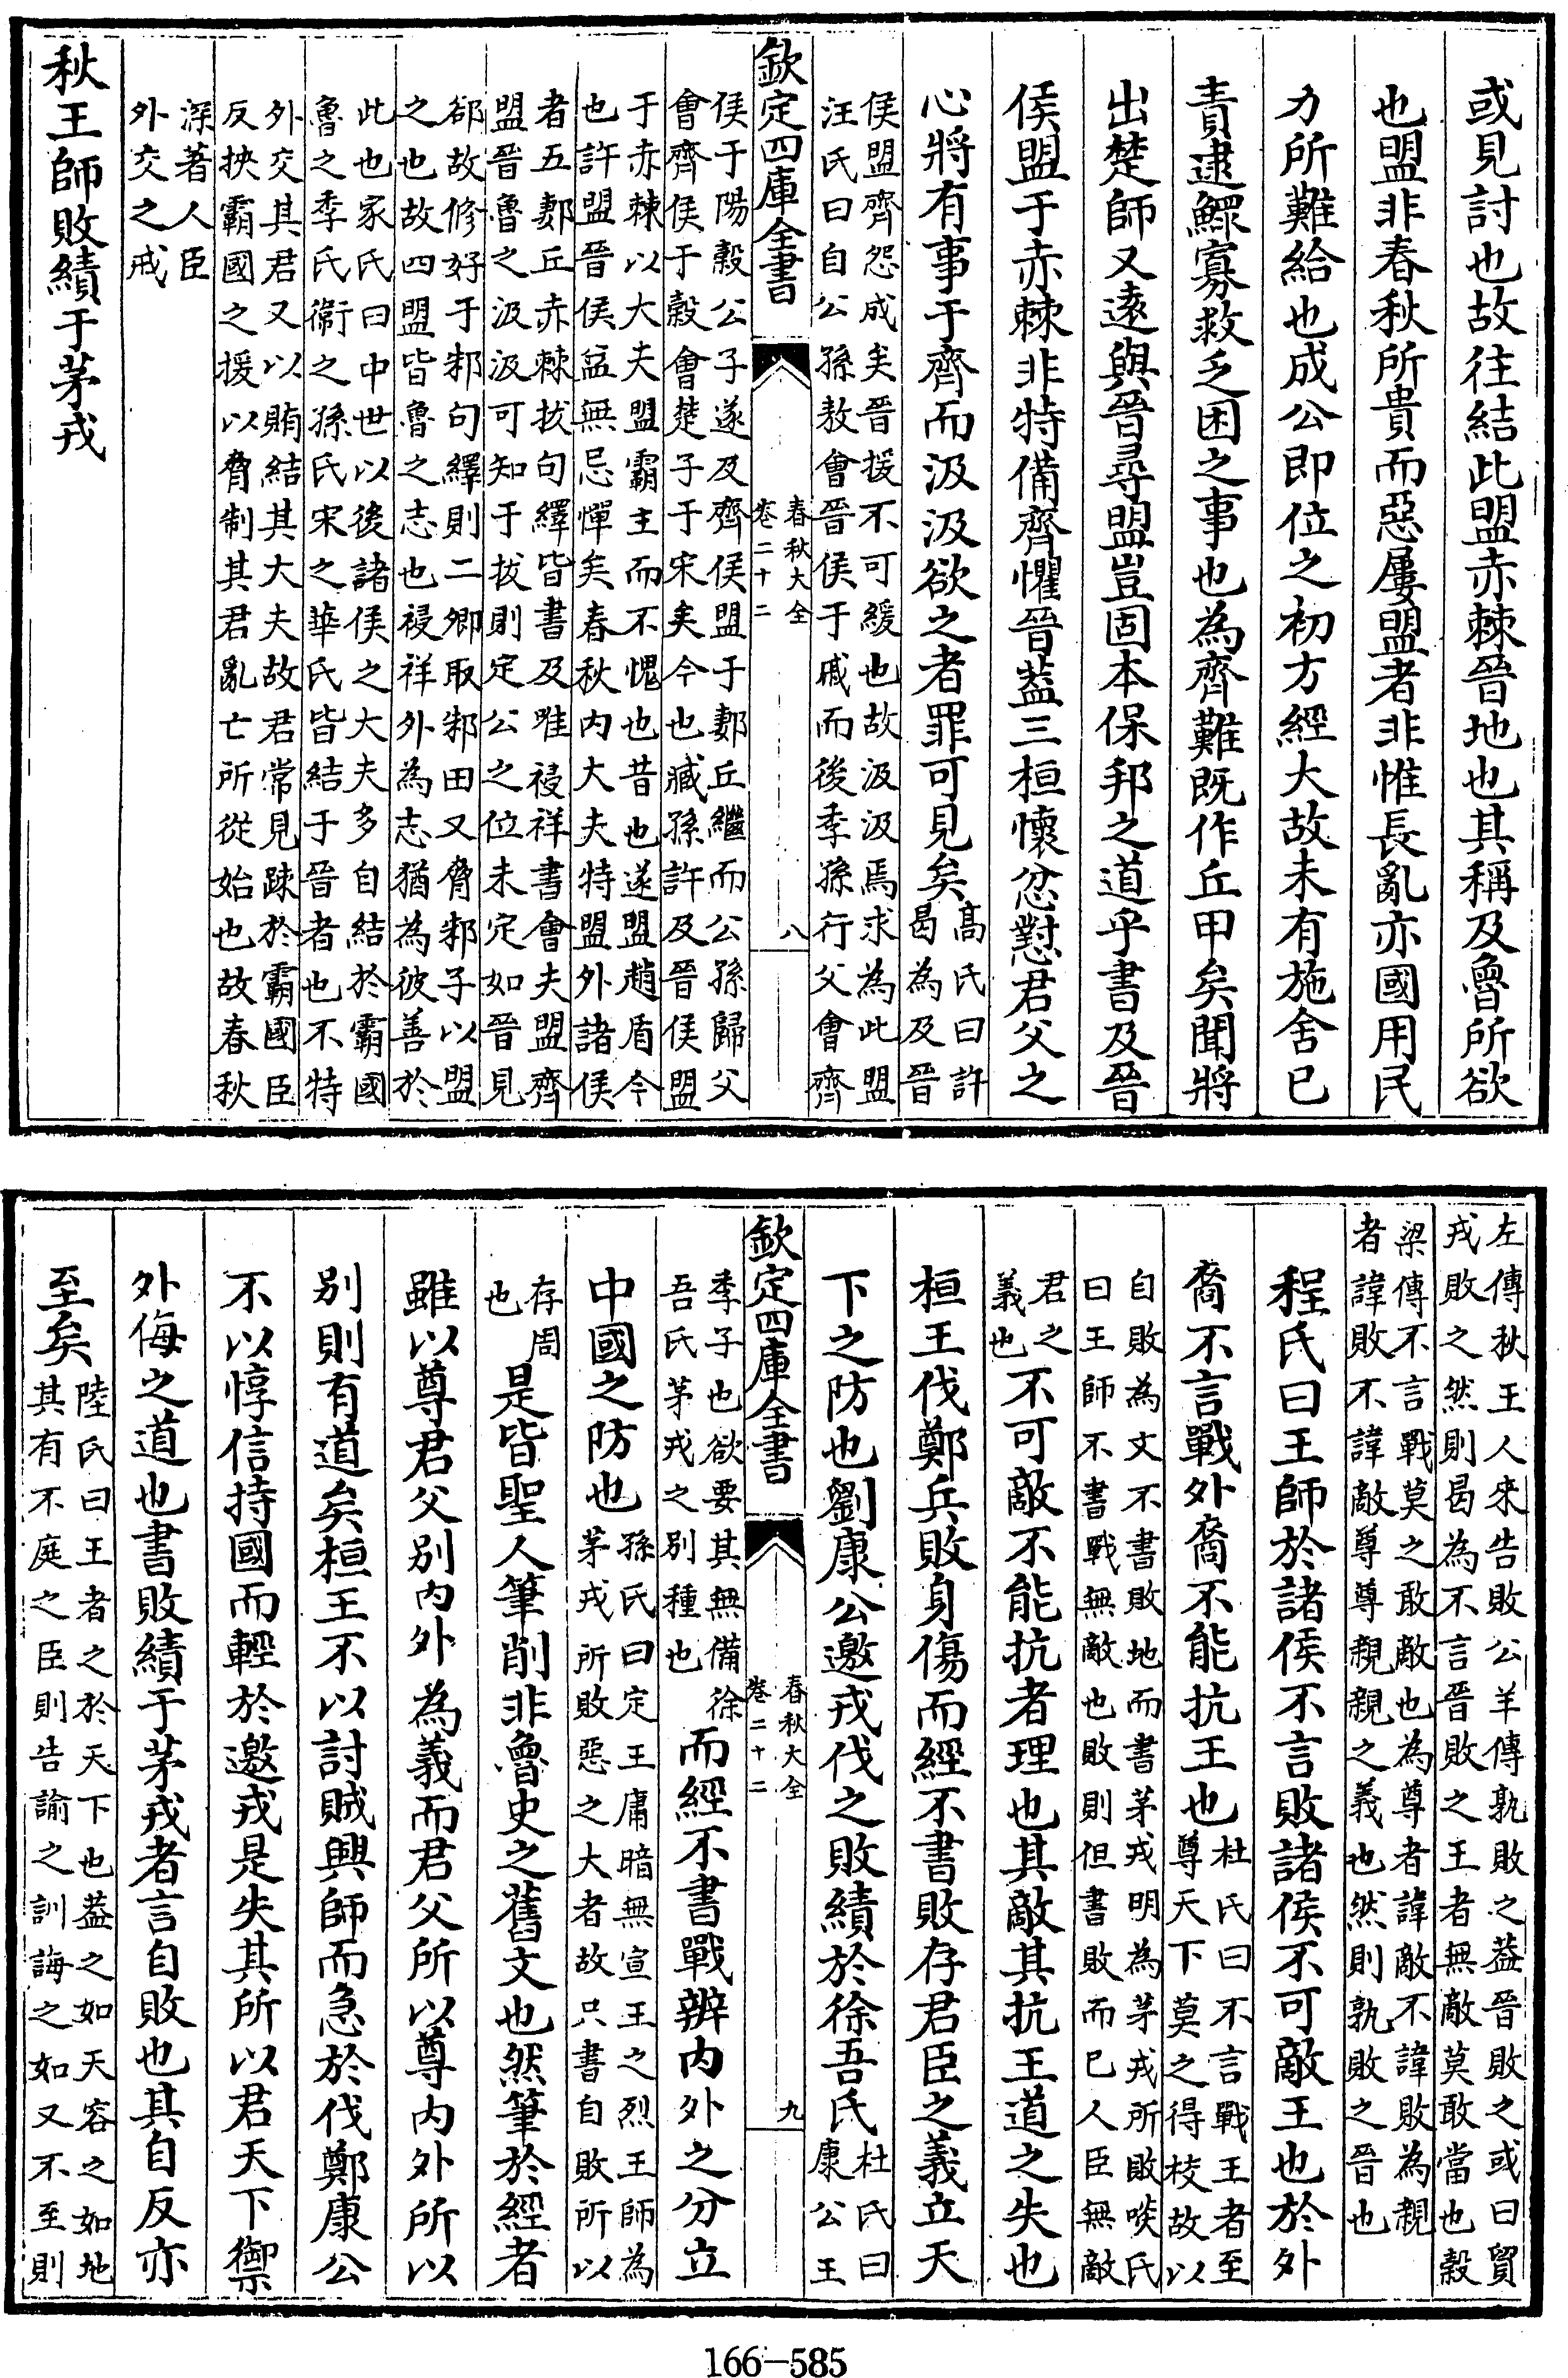 或見討也故往結此盟赤棘晉地也其稱及魯所欲
也盟非春秋所貴而惡屢盟者非惟長亂亦國用民
力所難給也成公即位之初方經大故未有施舍已
責逮鰥寡救乏困之事也為齊難既作丘甲矣聞將
出楚師又遠與晉尋盟豈固本保邦之道乎書及晉
侯盟于赤棘非特備齊懼晉葢三桓懷忿懟君父之
心將有事于齊而汲汲欲之者罪可見矣
高氏曰許
曷為及晉
侯盟齊怨成矣晉援不可緩也故汲汲焉求為此盟
汪氏曰自公孫敖會晉侯于戚而後季孫行父會齊
欽定四庫全書
春秋大全
卷二十二
八
侯于陽穀公子遂及齊侯盟于郪丘繼而公孫歸父
會齊侯于穀會楚子于宋矣今也臧孫許及晉侯盟
于赤棘以大夫盟霸主而不愧也昔也遂盟趙盾今
也許盟晉侯益無忌憚矣春秋内大夫特盟外諸侯
者五郪丘赤棘拔句繹皆書及唯祲祥書會夫盟齊
盟晉魯之汲汲可知于拔則定公之位未定如晉見
郤故修好于邾句繹則二卿取邾田又脅邾子以盟
之也故四盟皆魯之志也祲祥外為志猶為彼善於
此也家氏曰中世以後諸侯之大夫多自結於霸國
魯之季氏衞之孫氏宋之華氏皆結于晉者也不特
外交其君又以賄結其大夫故君常見疎於霸國臣
反挾霸國之援以脅制其君亂亡所從始也故春秋
深著人臣
外交之戒
秋王師敗績于茅戎
左傳秋王人來告敗公羊傳孰敗之葢晉敗之或曰貿
戎敗之然則曷為不言晉敗之王者無敵莫敢當也穀
梁傳不言戰莫之敢敵也為尊者諱敵不諱敗為親
者諱敗不諱敵尊尊親親之義也然則孰敗之晉也
程氏曰王師於諸侯不言敗諸侯不可敵王也於外
裔不言戰外裔不能抗王也
杜氏曰不言戰王者至
尊天下莫之得校故以
自敗為文不書敗地而書茅戎明為茅戎所敗啖氏
曰王師不書戰無敵也敗則但書敗而已人臣無敵
君之
義也
不可敵不能抗者理也其敵其抗王道之失也
桓王伐鄭兵敗身傷而經不書敗存君臣之義立天
下之防也劉康公邀戎伐之敗績於徐吾氏
杜氏曰
康公王
欽定四庫全書
春秋大全
卷二十二
九
季子也欲要其無備徐
吾氏茅戎之别種也
而經不書戰辨内外之分立
中國之防也
孫氏曰定王庸暗無宣王之烈王師為
茅戎所敗惡之大者故只書自敗所以
存周
也
是皆聖人筆削非魯史之舊文也然筆於經者
雖以尊君父别内外為義而君父所以尊内外所以
别則有道矣桓王不以討賊興師而急於伐鄭康公
不以惇信持國而輕於邀戎是失其所以君天下禦
外侮之道也書敗績于茅戎者言自敗也其自反亦
至矣
陸氏曰王者之於天下也葢之如天容之如地
其有不庭之臣則告諭之訓誨之如又不至則
166-585